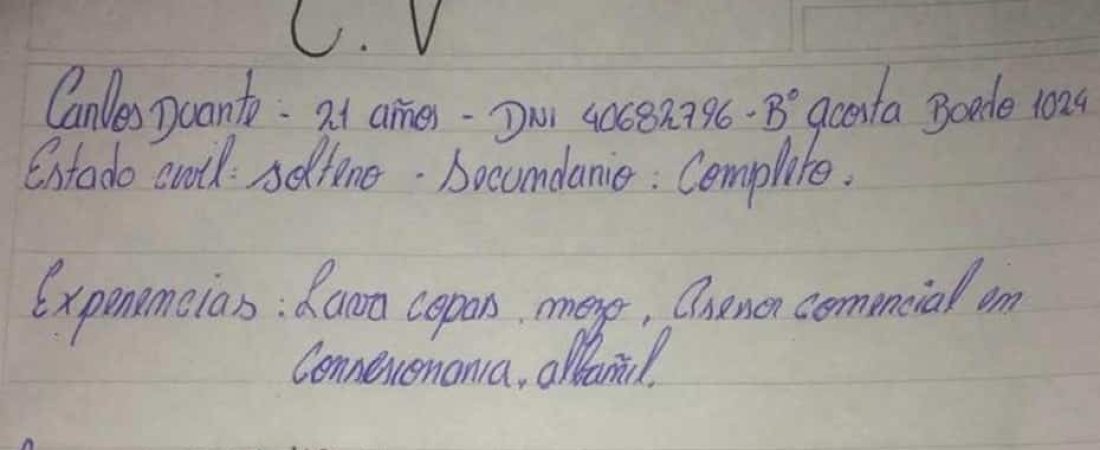 C.V
Carlos Duarte - 21 años - DNI 40682796 - B° acosta Borde 1024
Estado civil: soltero - Secundario: Completo.
Experiencias: Lava copas, mozo, Asesor comercial en
Consesionaria, albañil.